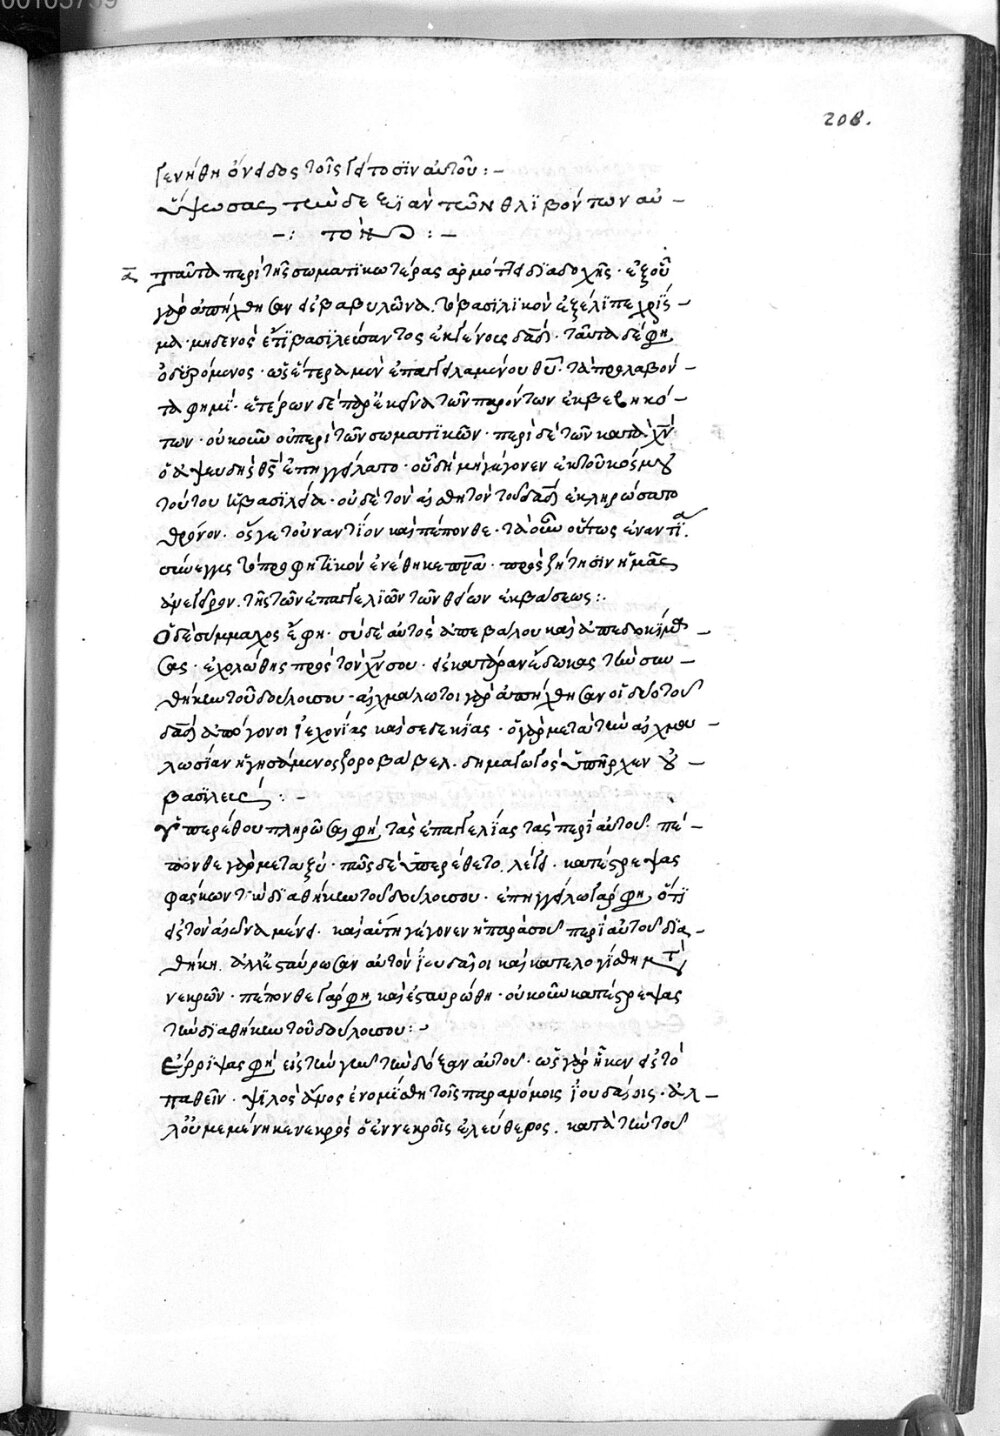 208.
γενήθη ὄνειδος τοῖς γείτοσιν αὐτοῦ :–
ὕψωσας τὴν δεξϊὰν τῶν θλϊβόντων αὐ –
–: τὸν :–
α ταῦτα περὶ τῆς σωματϊκωτέρας ἁρμόττει δϊαδοχῆς · ἐξ οὗ
γὰρ ἀπήχθησαν εἰς βαβυλῶνα. τὸ βασϊλϊκὸν ἐξέλϊπε χρῖς –
μα · μηδενὸς ἔτϊ βασϊλεύσαντος ἐκ γένους δαδ · ταῦτα δέ φη
ὀδυρόμενος · ὡς ἕτερα μὲν ἐπαγγειλαμένου θυ · τὰ προλαβόν –
τα φημϊ · ἑτέρων δὲ παρ' ἐκεῖνα τῶν παρόντων ἐκβεβηκό –
των · οὐκοῦν οὐ περὶ τῶν σωματϊκῶν · περὶ δὲ τῶν κατὰ χν
ὁ ἀψευδὴς θς ἐπηγγείλατο · οὗ δὴ μὴ γέγονεν ἐκ τοῦ κόσμου
τούτου ἡ βασϊλεία · οὐδὲ τὸν αἰσθητὸν τοῦ δαδ ἐκληρώσατο
θρόνον · ὅς γε τοὐναντΐον καὶ πέπονθε · τὰ οὖν οὕτως ἐναντΐα
συνεγγυς τὸ προφητϊκὸν ἐνέθηκε πνα · πρὸς ζήτησϊν ἡμᾶς
ἀγεῖρον. τῆς τῶν ἐπαγγελϊῶν τῶν θείων ἐκβάσεως :.
Ὁ δὲ σύμμαχος ἔφη · σὺ δὲ αὐτὸς ἀπεβάλου καὶ ἀπεδοκίμα –
σας · ἐχολώθης πρὸς τὸν χν σου · εἰς κατάραν ἔδωκας τὴν συν –
θήκην τοῦ δούλου σου · αἰχμάλωτοι γὰρ ἀπήχθησαν οἱ δύο τοῦ
δαδ ἀπόγονοι ἰεχονίας καὶ σεδεκίας · ὁ γὰρ μετὰ τὴν αἰχμα –
λωσίαν ἡγησάμενος ζοροβάβελ. δημαγωγὸς ὑπῆρχεν οὐ –
βασϊλεύς :–
Ὑπερέθου πληρῶσαι φη τὰς ἐπαγγελϊας τὰς περὶ αὐτοῦ · πέ –
πονθε γὰρ μεταξύ · πῶς δὲ ὑπερέθετο. λέγει · κατέστρεψας
φάσκων τὴν δϊαθήκην τοῦ δούλου σου · ἐπηγγείλω γάρ φη ὅτϊ
εἰς τὸν αἰῶνα μένει · καὶ αὕτη γέγονεν ἡ παρὰ σοῦ περὶ αὐτοῦ δϊα –
θήκη. ἀλλ' ἐσταύρωσαν αὐτὸν ἰουδαῖοι καὶ κατελογΐσθη μετὰ
νεκρῶν · πέπονθε γάρ φη καὶ ἐσταυρώθη · οὐκοῦν κατέστρεψας
τὴν δϊαθήκην τοῦ δούλου σου :
Ἐρρϊψας φη εἰς τὴν γῆν τὴν δόξαν αὐτοῦ · ὡς γὰρ ἧκεν εἰς τὸ
παθεῖν · ψϊλὸς ἄνος ἐνομίσθη τοῖς παρανόμοις ἰουδαίοις · ἀλ –
λ' οὐ μεμένηκε νεκρὸς ὁ ἐν νεκροῖς ἐλεύθερος. κατὰ τὴν τοῦ